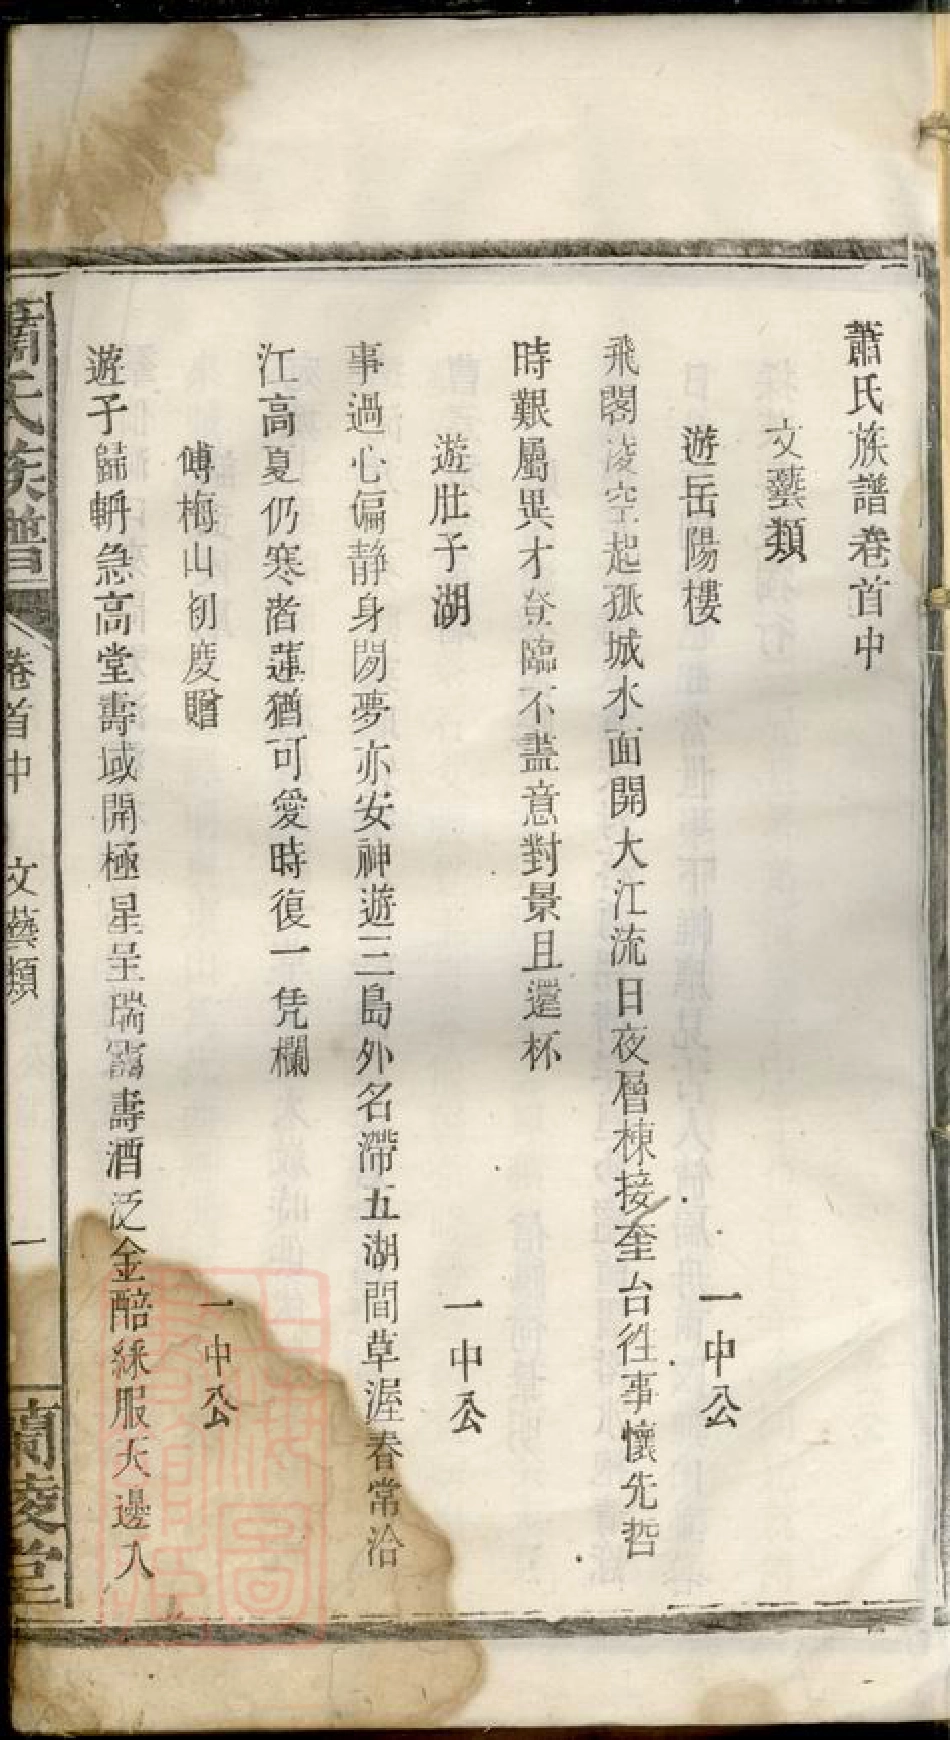 蕭氏族譜卷首中
文藝類
遊岳陽樓 一中公
飛閣淩空起孤城水面開大江流日夜層棟接奎台往事懷先哲
時艱屬異才登臨不盡意對景且還杯
遊肚子湖 一中公
事過心偏静身閒夢亦安神遊三島外名滯五湖間草渥春常洽
江高夏仍寒渚蓮猶可愛時復一凭欄
傅梅山初度贈 一中公
遊子歸輈急高堂壽域開極星呈瑞靄壽酒泛金醅綵服天邊入
蕭氏族譜 卷首中 文藝類 一 蘭陵堂